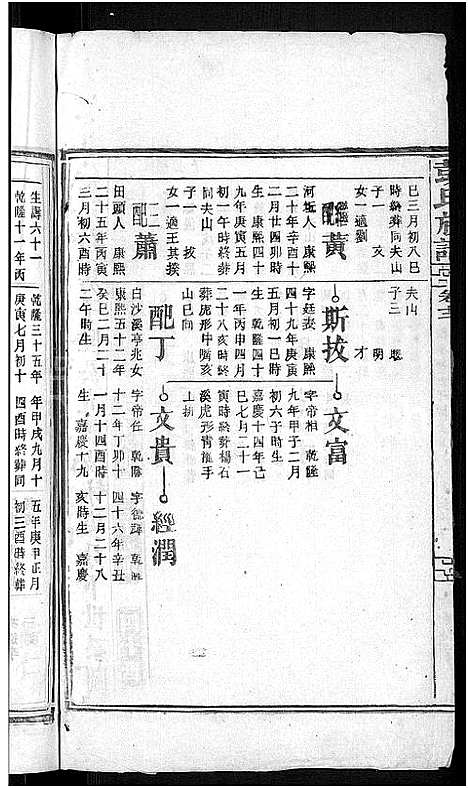 彭氏族譜
巳三月初八巳
時終葬同夫山
子一 亥
女一適劉
繼配黃
河坵人 康熙
二十年辛酉十
二月廿四卯時
生 康熙四十
九年庚寅五月
初一午時終葬
同夫山
子一 拔
女一適王其揆
二配蕭
田頭人 康熙
二十五年丙寅
三月初六酉時
夫山
子三 聰
明
才
斯拔
康熙
四十九年庚寅
生 乾隆四十
一年丙申四月
二十八亥時終
葬虎形中嘴亥
山巳向
配丁
白沙溪亭兆女
康熙五十二年
癸巳二月二十
二午時生
文富
字帝相 乾隆
九年甲子二月
初六子時生
嘉慶十四年己
巳七月二十一
寅時終葬楊石
溪虎形
文貴
字帝任 乾隆
十二年丁卯十
一月十四酉時
生 嘉慶十九
經潤
乾隆
四十六年辛丑
十二月二十八
亥時生 嘉慶
生壽六十一
乾隆十一年丙
乾隆三十五年
庚寅七月初十
年甲戌九月十
四酉時終葬同
五年庚申正月
初三酉時終葬